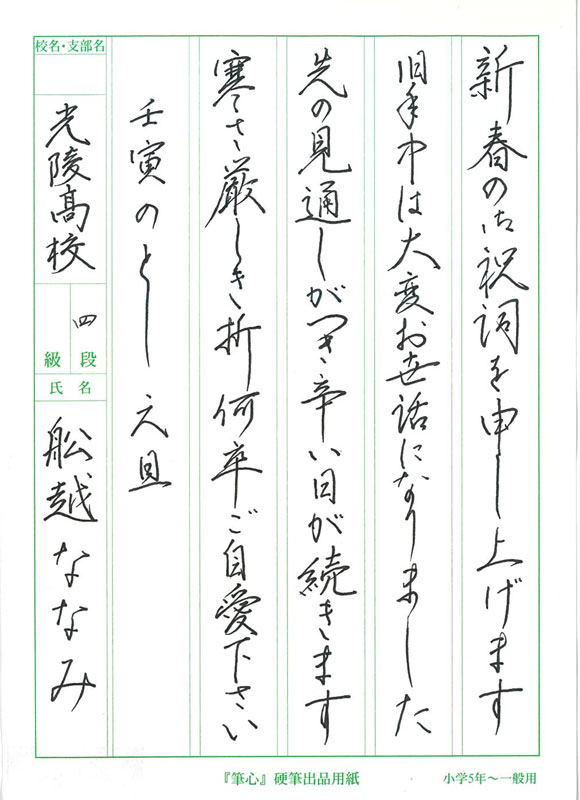 新春の御祝詞を申し上げます
旧年中は大変お世話になりました
先の見通しがつき・辛い日が続きます
寒さ厳しき折何卒ご自愛下さい
壬寅のとし 元旦
校名・支部名
光陵高校
四段
級
氏名
舩越ななみ
『筆心』硬筆出品用紙
小学5年～一般用